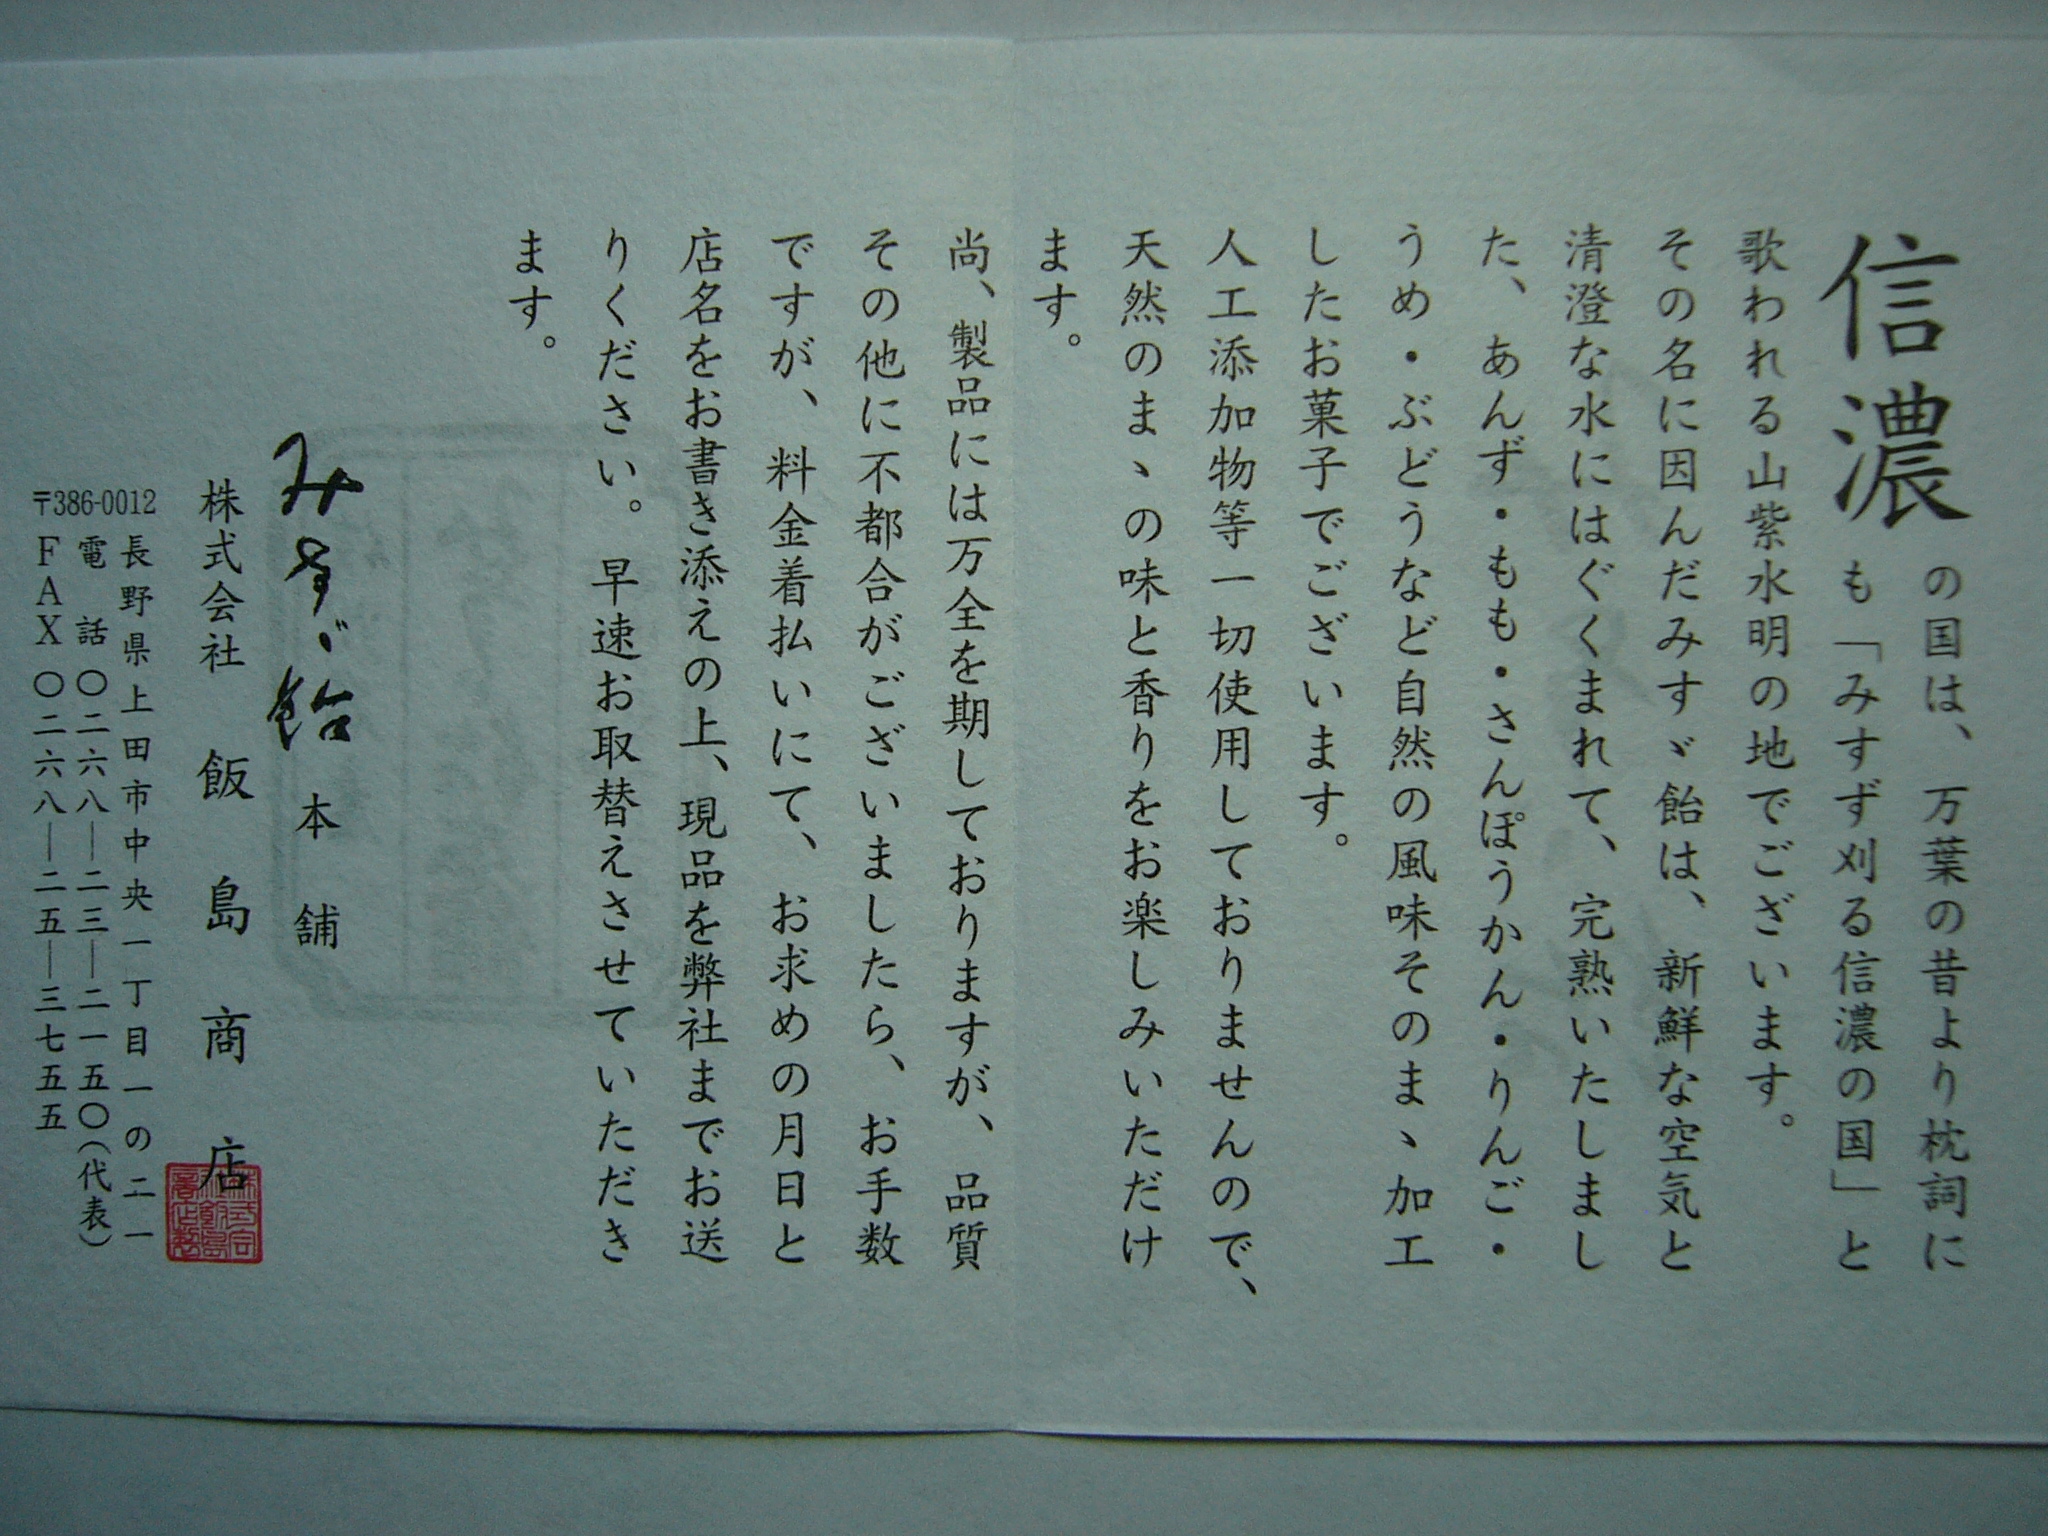 信濃の国は、万葉の昔より枕詞に
も「みすず刈る信濃の国」と
歌われる山紫水明の地でございます。
その名に因んだみすゞ飴は、新鮮な空気と
清澄な水にはぐくまれて、完熟いたしまし
た、あんず・もも・さんぽうかん・りんご・
うめ・ぶどうなど自然の風味そのまゝ加工
したお菓子でございます。
人工添加物等一切使用しておりませんので、
天然のまゝの味と香りをお楽しみいただけ
ます。
尚、製品には万全を期しておりますが、品質
その他に不都合がございましたら、お手数
ですが、料金着払いにて、お求めの月日と
店名をお書き添えの上、現品を弊社までお送
りください。早速お取替えさせていただき
ます。
みすゞ飴本舗
株式会社 飯島商店
〒386-0012 長野県上田市中央一丁目一の二一
電話〇二六八―二三―二一五〇(代表)
FAX〇二六八―二五―三七五五